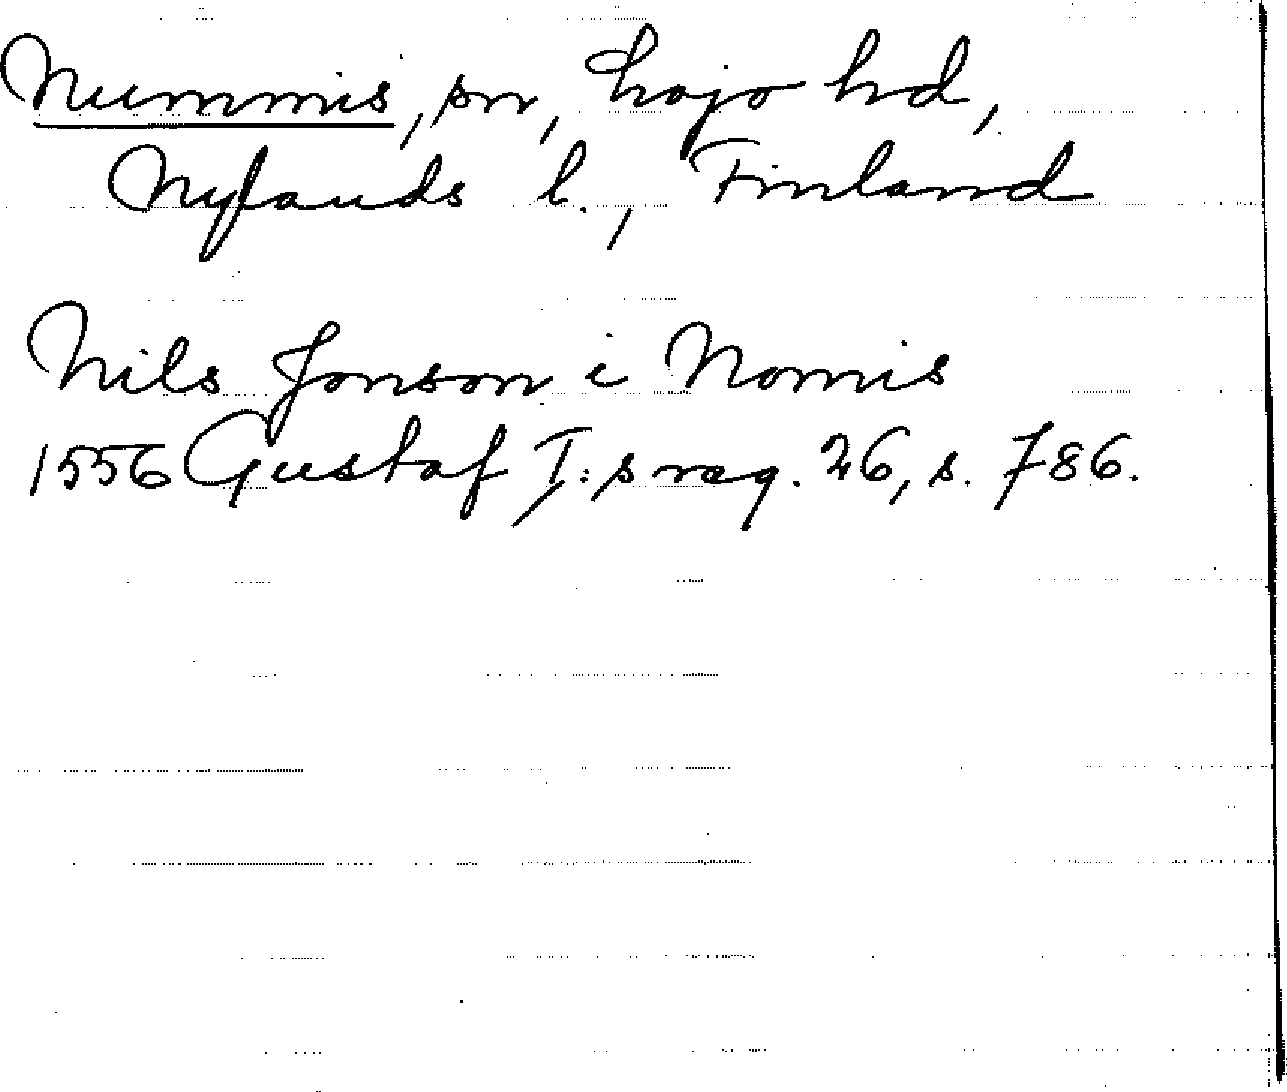 Nummis, sn, Lojo hd,
Nylands l., Finland
Nils Jonson i Nomis
1556 Gustaf I:s reg. 26, s. 786.